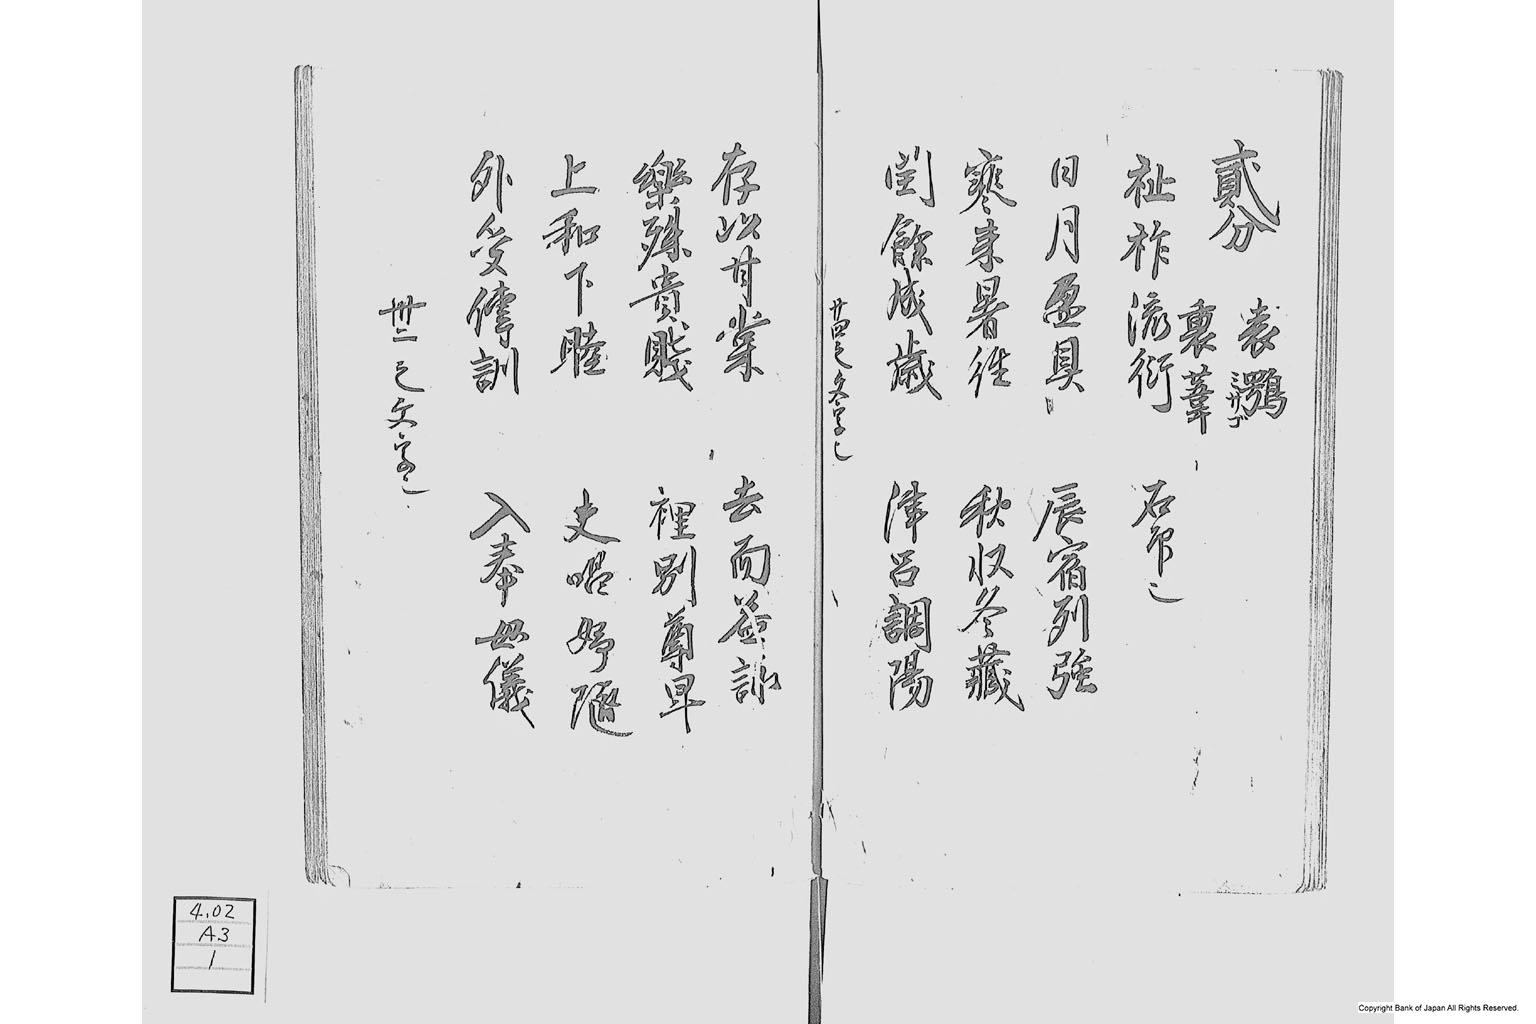 貳分
表鶚
裏葦
祉祚流衍 石印之
日月盈昃 辰宿列張
寒来暑往 秋収冬蔵
閏餘成歳 律呂調陽
廿四之文字之
存以甘棠 去而益詠
樂殊貴賤 禮別尊卑
上和下睦 夫唱婦随
外受傅訓 入奉母儀
卅二之文字之
4.02
A3
1
Copyright Bank of Japan All Rights Reserved.